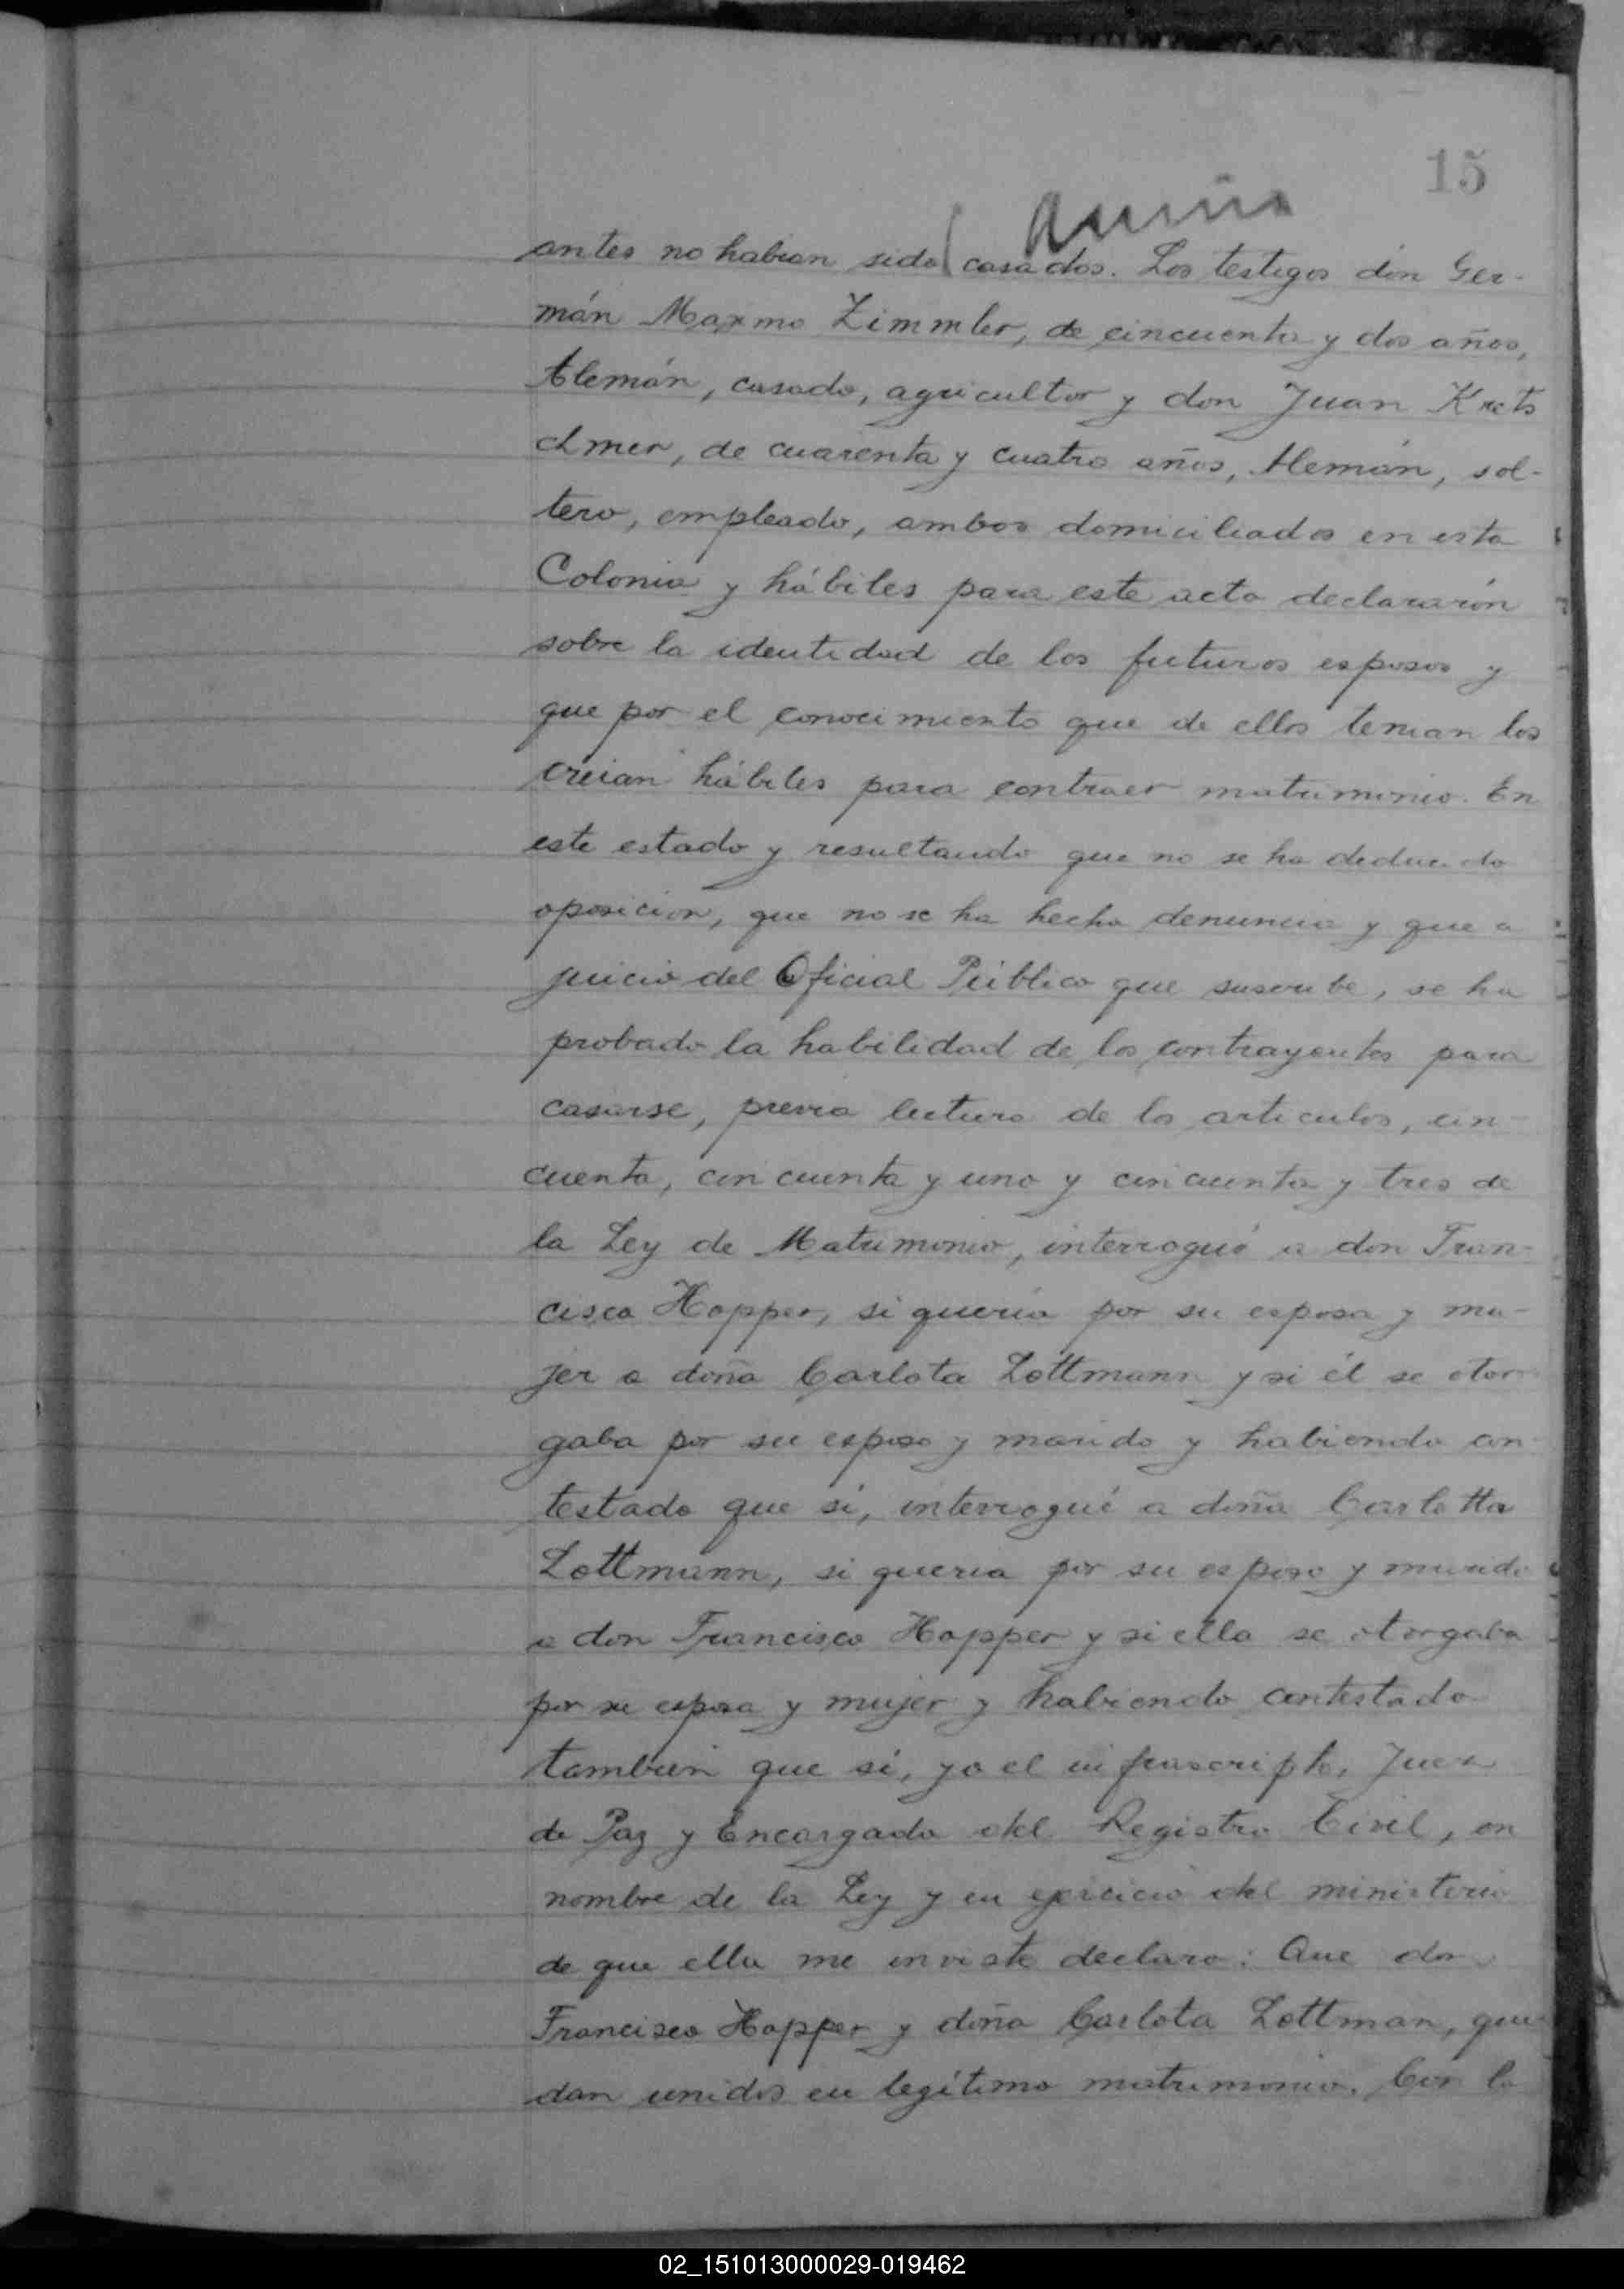 15
antes no habian sido casados. Los testigos dón Ger-
mán Maxmo Zimmler, de cincuenta y dos años,
Alemán, casado, agricultor y don Juan Krets
chmer, de cuarenta y cuatro años, Alemán, sol-
tero, empleado, ambos domiciliados en esta
Colonia y hábiles para este acto declararón
sobre la identidad de los futuros esposos y
que por el conocimiento que de ellos tenian los
creian hábiles para contraer matrimonio. En
este estado y resultando que no se ha deducido
oposicion, que no se ha hecho denuncia y que a
juicio del Oficial Público que suscribe, se ha
probado la habilidad de los contrayentes para
casarse, previa lectura de los articulos, cin-
cuenta, cincuenta y uno y cincuenta y tres de
la Ley de Matrimonio, interrogué a don Fran-
cisco Hopper, si queria por su esposa y mu-
jer a doña Carlota Lottmann y si él se otor
gaba por su esposo y marido y habiendo con-
testado que si, interrogué a doña Carlotta
Lottmann, si queria por su esposo y marido
a don Francisco Hopper y si ella se otorgaba
por su esposa y mujer y habiendo contestado
tambien que si, yo el infrascripto, Juez
de Paz y Encargado del Registro Civil, en
nombre de la Ley y en ejercicio del ministerio
de que ella me inviste declaro: Que don
Francisco Hopper y doña Carlota Lottman, que-
dan unidos en legítimo matrimonio. Con lo
02_151013000029-019462